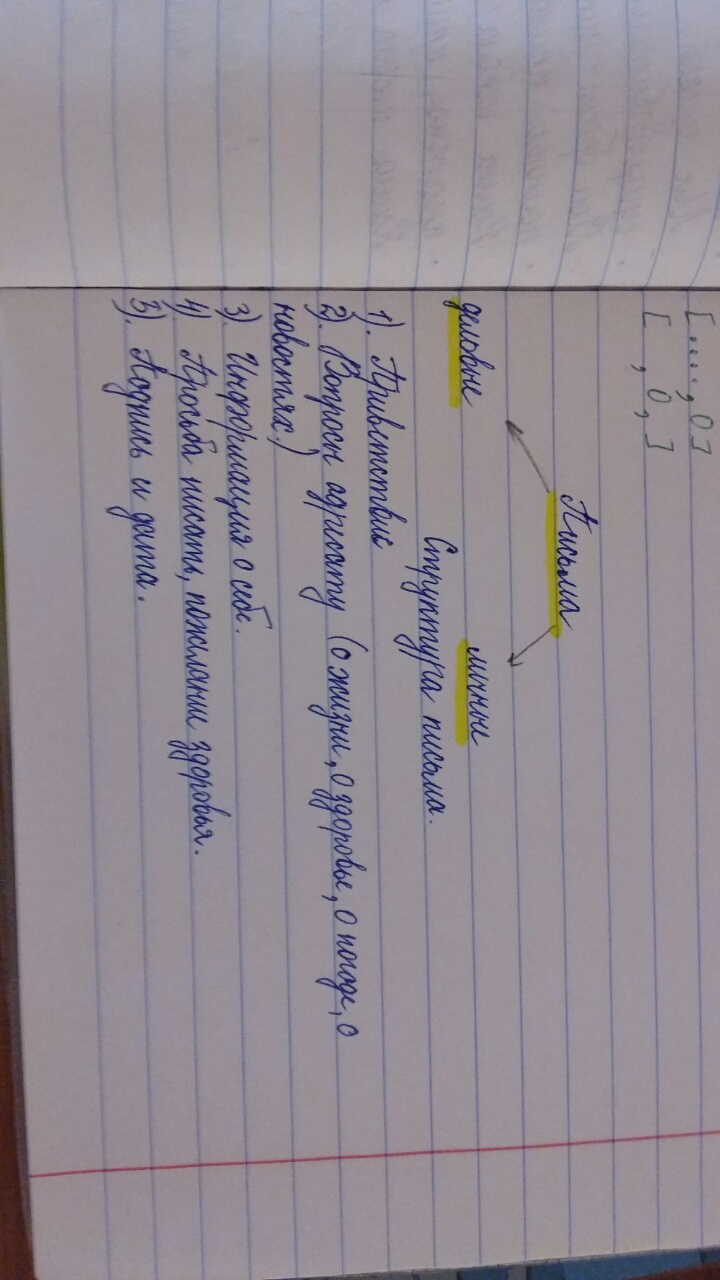 [...., О]
[ , О, ]
Письма
деловые личные
Структура письма.
1). Приветствие
2). Вопросы адресату (о жизни, о здоровье, о погоде, о
новостях.)
3). Информация о себе.
4) Просьба писать, пожелание здоровья.
5). Подпись и дата.